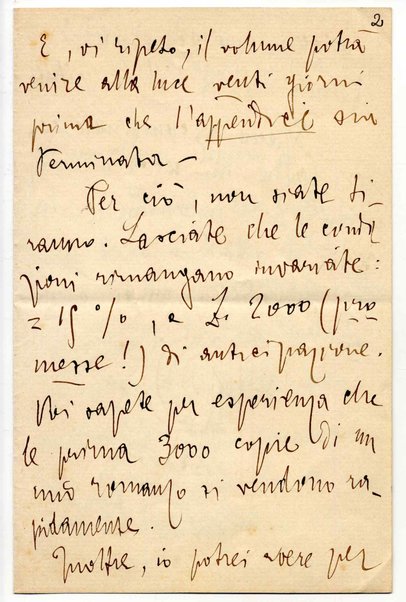 2
E, vi ripeto, il volume potrà
venire alla luce venti giorni
prima che l'appendice sia
terminata –
Per ciò, non siate ti-
ranno. Lasciate che le condi
zioni rimangano invariate:
= 15 %, e L. 2000 (pro
messe!) di anticipazione.
Voi sapete per esperienza che
le prime 3000 copie di un
mio romanzo si vendono ra-
pidamente.
Inoltre, io potrei avere per